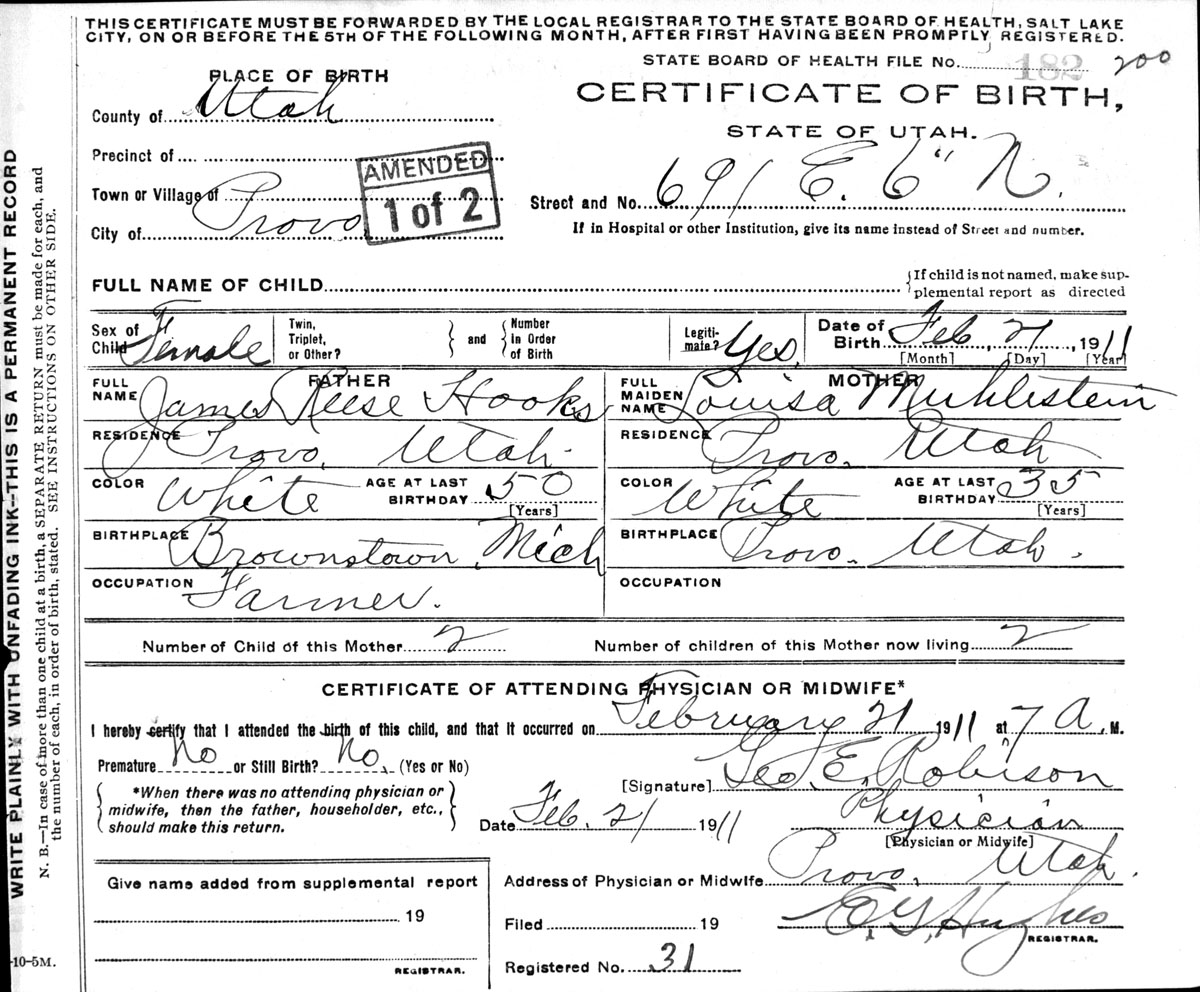 THIS CERTIFICATE MUST BE FORWARDED BY THE LOCAL REGISTRAR TO THE STATE BOARD OF HEALTH, SALT LAKE
CITY, ON OR BEFORE THE 5TH OF THE FOLLOWING MONTH, AFTER FIRST HAVING BEEN PROMPTLY REGISTERED.
STATE BOARD OF HEALTH FILE No. 182 200
PLACE OF BIRTH
CERTIFICATE OF BIRTH,
STATE OF UTAH.
County of Utah
Precinct of
Town or Village of
City of Provo
AMENDED
1 of 2
Street and No. 691 E. 6" N.
If in Hospital or other Institution, give its name instead of Street and number.
FULL NAME OF CHILD
{If child is not named, make sup-
plemental report as directed
Sex of Child Female
Twin, Triplet, or Other? } and { Number in Order of Birth
Legiti-mate? Yes
Date of Birth Feb, 21, 1911
[Month] [Day] [Year]
FATHER
FULL NAME James Reese Hooks
RESIDENCE Provo, Utah.
COLOR White AGE AT LAST BIRTHDAY 50
[Years]
BIRTHPLACE Brownstown, Mich
OCCUPATION Farmer.
MOTHER
FULL MAIDEN NAME Louisa Muhlestein
RESIDENCE Provo. Utah
COLOR White AGE AT LAST BIRTHDAY 35
[Years]
BIRTHPLACE Provo. Utah.
OCCUPATION
Number of Child of this Mother 2 Number of children of this Mother now living 2
CERTIFICATE OF ATTENDING PHYSICIAN OR MIDWIFE*
I hereby certify that I attended the birth of this child, and that it occurred on February 21 1911 at 7 A. M.
Premature No or Still Birth? No. (Yes or No)
[Signature] Geo E. Robison
{ *When there was no attending physician or
midwife, then the father, householder, etc.,
should make this return. }
Date Feb. 21 1911 Physician
[Physician or Midwife]
Give name added from supplemental report
19
REGISTRAR.
Address of Physician or Midwife Provo, Utah.
Filed 19 E. G. Hughes
REGISTRAR.
Registered No. 31
WRITE PLAINLY WITH UNFADING INK--THIS IS A PERMANENT RECORD
N. B.—In case of more than one child at a birth, a SEPARATE RETURN must be made for each, and
the number of each, in order of birth, stated. SEE INSTRUCTIONS ON OTHER SIDE.
-10-5M.